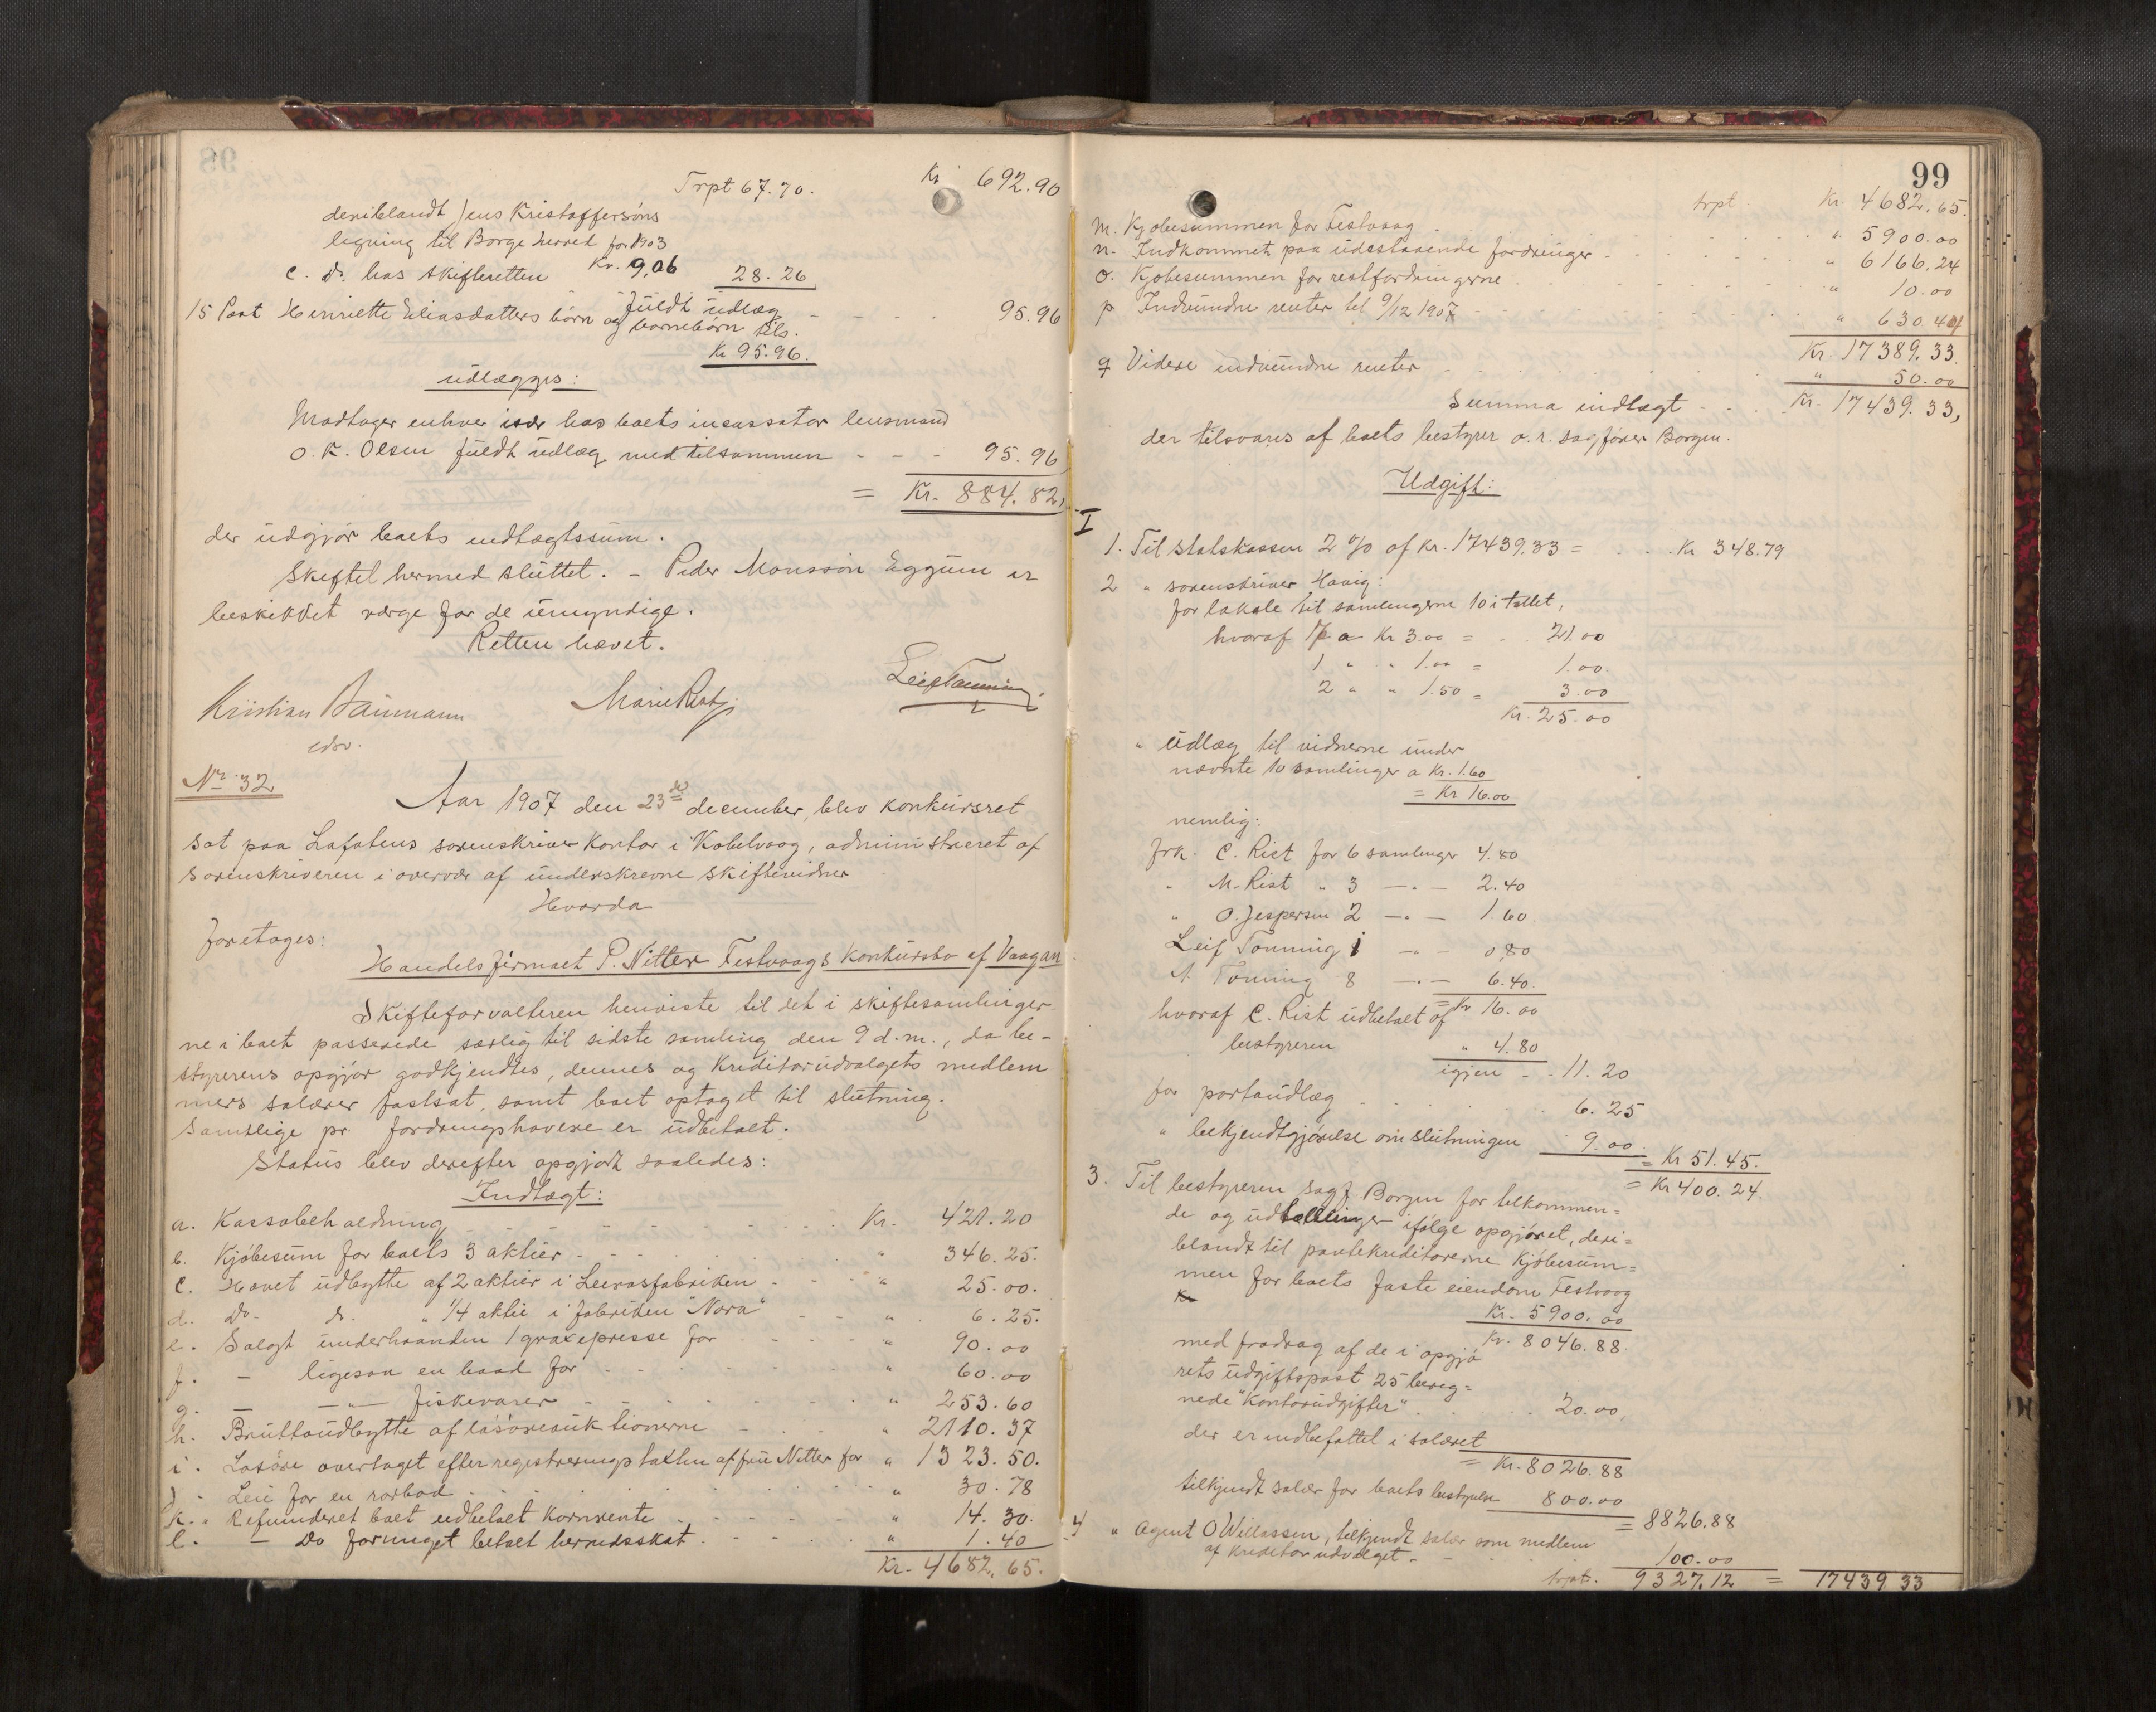 Trpt 67.70. Kr 692.90
deriblandt Jens Kristoffersöns
ligning til Borge herred for 1903
Kr. 9,06
c. Do. hos skifteretten 28.26
15 Paat Henriette Eliasdatters börn og barnebörn tils. fuldt udlæg - - - 95.96
Kr 95.96.
udlægges:
Modtager enhver især hos boets incassator lensmand
O. K. Olsen fuldt udlæg med tilsammen - - - 95.96
= Kr. 884.82,
der udgjör boets indtægtssum.
Skiftet hermed sluttet. - Peder Monssön Eggum er
beskikket værge for de umyndige.
Retten hævet.
Kristian Baumann
edsv.
Marie Rist
Leif Tonning
No 32
Aar 1907 den 23de december, blev konkursret
sat paa Lofotens sorenskriverkontor i Kabelvaag, administreret af
sorenskriveren i overvær af underskrevne skiftevidner
Hvorda
foretoges:
Handelsfirmaet P. Nitter Festvaags konkursbo af Vaagan
Skifteforvalteren henviste til det i skiftesamlinger-
ne i boet passerede særlig til sidste samling den 9 d.m., da be-
styrerens opgjör godkjendtes, dennes og kreditorudvalgets medlem
mers salærer fastsat, samt boet optaget til slutning.
Samtlige pr. fordringshavere er udbetalt.
Status blev derefter opgjort saaledes:
Indtægt:
a. Kassabeholdning - - - Kr. 421.20
b. Kjöbesum for boets 3 aktier - - - " 346.25.
c. Hævet udbytte af 2 aktier i Leerasfabriken - - - " 25.00.
d. Do. do. " 1/4 aktie i fabriken "Nora" - - " 6.25.
e. Solgt underhaanden 1 graxepresse for - - - " 90.00
f. - ligesaa en baad for - - - " 60.00
g. - -"- fiskevarer - - - " 253.60
h. Bruttoudbytte af lösöreauktionerne - - - " 2110.37
i. Lösöre overtaget efter registreringstaksten af fru Nitter for " 1323.50.
j. Leie for en rorbod - - - " 30.78
k. " Refunderet boet udbetalt kornrente - - - " 14.30.
l. - Do formeget betalt herredsskat - - - " 1.40
Kr. 4682.65.
99
trpt. Kr. 4682.65.
m. Kjöbesummen for Festvaag - - - " 5900.00
n. Indkommet paa udestaaende fordringer - - - " 6166.24
o. Kjöbesummen for restfordringerne - - - " 10.00
p Indvundne renter til 9/12 1907 - - - " 630.44
Kr. 17389.33.
q Videre indvundne renter - - - " 50.00
Summa indtægt - - - Kr. 17439.33,
der tilsvares af boets bestyrer o.r. sagförer Borgen.
Udgift:
I
1. Til statskassen 2 % af Kr. 17439.33 = - - Kr 348.79
2 " sorenskriver Havig:
for lokale til samlingerne 10 i tallet,
hvoraf 7 a Kr 3.00 = - - 21.00
1 " " 1.00 = 1.00.
2 " " 1.50 = 3.00
Kr. 25.00
" Udlæg til vidnerne under
nævnte 10 samlinger a Kr. 1.60
= Kr 16.00
nemlig:
frk. C. Rist for 6 samlinger 4.80
" M. Rist " 3 -"- 2.40
" O. Jespersen 2 -"- 1.60
Leif Tonning 1 -"- 0,80
A Tonning 8 -"- 6.40.
= Kr 16.00
hvoraf C. Rist udbetalt af
bestyreren " 4.80
igjen - . 11.20
for portoudlæg - - - 6.25
" bekjendtgjörelse om slutningen - 9.00 = Kr 51.45.
= Kr 400.24.
3. Til bestyreren sagf. Borgen for tilkommen=
de og udtællinger ifölge opgjöret, deri=
blandt til pantekreditorerne kjöbesum=
men for boets faste eiendom Festvaag
Kr
Kr. 5900.00
Kr. 8046.88.
med fradrag af de i opgjö
rets udgiftspost 25 bereg=
nede "Kontorudgifter" - - - 20.00,
der er indbefattet i salæret
= Kr. 8026.88
tilkjendt salær for boets bestyrelse 800.00
= 8826.88
4 " Agent O Willassen, tilkjendt salær som medlem
af kreditorudvalget - - - 100.00
trpt. 9327.12 = 17439 33